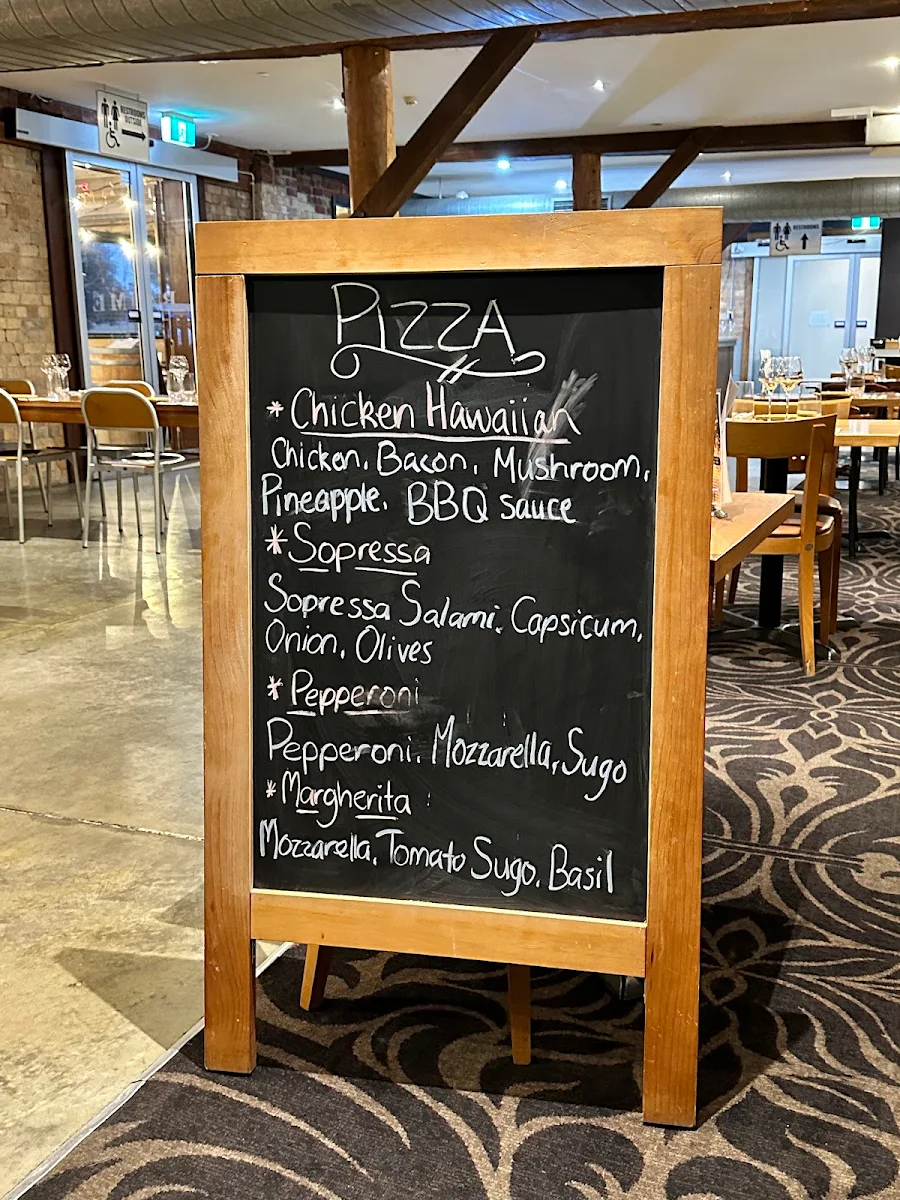 RESTROOMS
OUTSIDE
RESTROOMS
PIZZA
* Chicken Hawaiian
Chicken, Bacon, Mushroom,
Pineapple, BBQ sauce
* Sopressa
Sopressa Salami, Capsicum,
Onion, Olives
* Pepperoni
Pepperoni, Mozzarella, Sugo
* Margherita
Mozzarella, Tomato Sugo, Basil